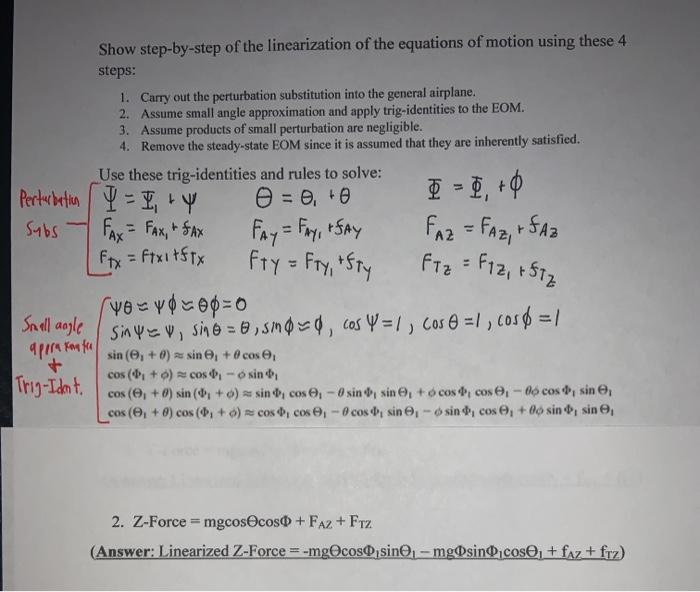 Show step-by-step of the linearization of the equations of motion using these 4
steps:
1. Carry out the perturbation substitution into the general airplane.
2. Assume small angle approximation and apply trig-identities to the EOM.
3. Assume products of small perturbation are negligible.
4. Remove the steady-state EOM since it is assumed that they are inherently satisfied.
Use these trig-identities and rules to solve:
Perturbation
Subs
Ψ = Ψ₁ + ψ   Θ = Θ₁ + θ   Φ = Φ₁ + ϕ
F_AX = F_AX₁ + f_AX   F_AY = F_AY₁ + f_AY   F_AZ = F_AZ₁ + f_AZ
F_TX = F_TX₁ + f_TX   F_TY = F_TY₁ + f_TY   F_TZ = F_TZ₁ + f_TZ
Small angle
+
Trig-Idnt.
ψθ ≈ ψϕ ≈ θϕ = 0
Sin ψ ≈ ψ, Sin θ = θ, sin ϕ ≈ ϕ, cos ψ = 1, cos θ = 1, cos ϕ = 1
sin (Θ₁ + θ) ≈ sin Θ₁ + θ cos Θ₁
cos (Φ₁ + ϕ) ≈ cos Φ₁ − ϕ sin Φ₁
cos (Θ₁ + θ) sin (Φ₁ + ϕ) ≈ sin Φ₁ cos Θ₁ − θ sin Φ₁ sin Θ₁ + ϕ cos Φ₁ cos Θ₁ − θϕ cos Φ₁ sin Θ₁
cos (Θ₁ + θ) cos (Φ₁ + ϕ) ≈ cos Φ₁ cos Θ₁ − θ cos Φ₁ sin Θ₁ − ϕ sin Φ₁ cos Θ₁ + θϕ sin Φ₁ sin Θ₁
2. Z-Force = mgcosΘcosΦ + F_AZ + F_TZ
(Answer: Linearized Z-Force = -mgΘcosΦ₁sinΘ₁ – mgΦsinΦ₁cosΘ₁ + f_AZ + f_TZ)